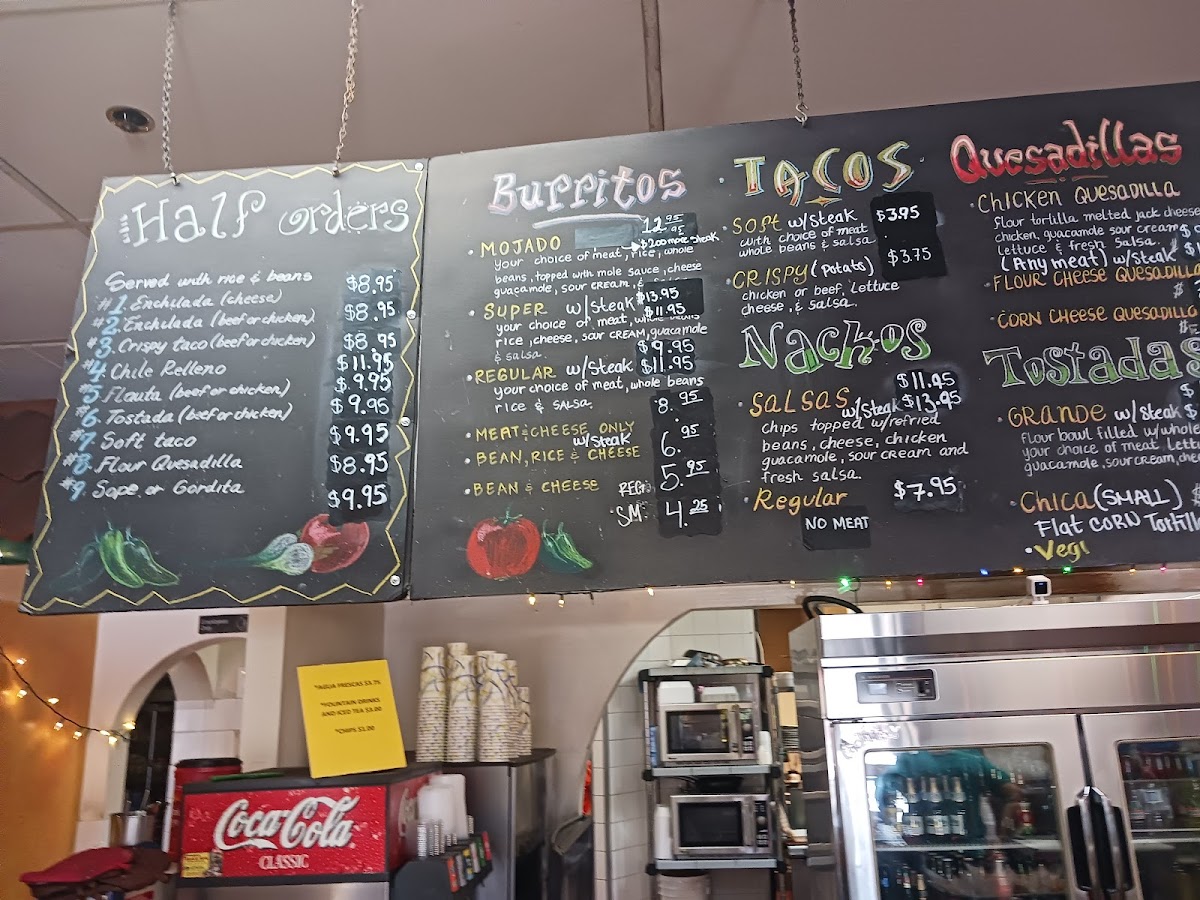 Half orders
Served with rice & beans
#1. Enchilada (cheese) $8.95
#2. Enchilada (beef or chicken) $8.95
#3. Crispy taco (beef or chicken) $8.95
#4. Chile Relleno $11.95
#5. Flauta (beef or chicken) $9.95
#6. Tostada (beef or chicken) $9.95
#7. Soft taco $9.95
#8. Flour Quesadilla $8.95
#9. Sope or Gordita $9.95
Burritos
• MOJADO 12.95
$2.00 more steak
your choice of meat, rice, whole
beans, topped with mole sauce, cheese
guacamole, sour cream, &
• SUPER w/steak $13.95
$11.95
your choice of meat, whole beans
rice, cheese, sour cream, guacamole
& salsa.
$9.95
• REGULAR w/steak $11.95
your choice of meat, whole beans
rice & salsa.
• MEAT & CHEESE ONLY 8.95
w/steak
• BEAN, RICE & CHEESE 6.95
• BEAN & CHEESE REG: 5.95
SM: 4.25
TACOS
• SOFT w/steak $3.95
with choice of meat
whole beans & salsa
• CRISPY (Potato) $3.75
chicken or beef, lettuce
cheese, & salsa.
Nachos
$11.95
• SALSAS w/steak $13.95
chips topped w/refried
beans, cheese, chicken
guacamole, sour cream and
fresh salsa.
• Regular $7.95
NO MEAT
Quesadillas
• CHICKEN QUESADILLA
Flour tortilla melted jack cheese
chicken, guacamole sour cream
lettuce & fresh salsa.
(Any meat) w/steak
• FLOUR CHEESE QUESADILLA
• CORN CHEESE QUESADILLA
Tostadas
• GRANDE w/steak
Flour bowl filled w/whole
your choice of meat
guacamole, sour cream,
• CHICA (SMALL)
Flat CORN
• Vegi
*AGUA FRESCAS $3.75
*FOUNTAIN DRINKS
AND ICED TEA $3.00
*CHIPS $1.00
Coca-Cola
CLASSIC